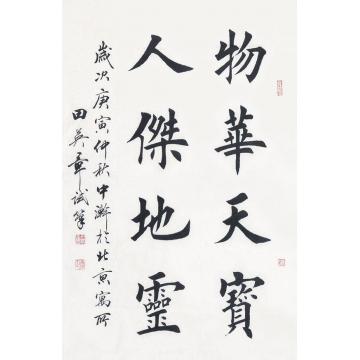 物華天寶
人傑地靈
歲次庚寅仲秋中澣於北京寓所
田英章試筆